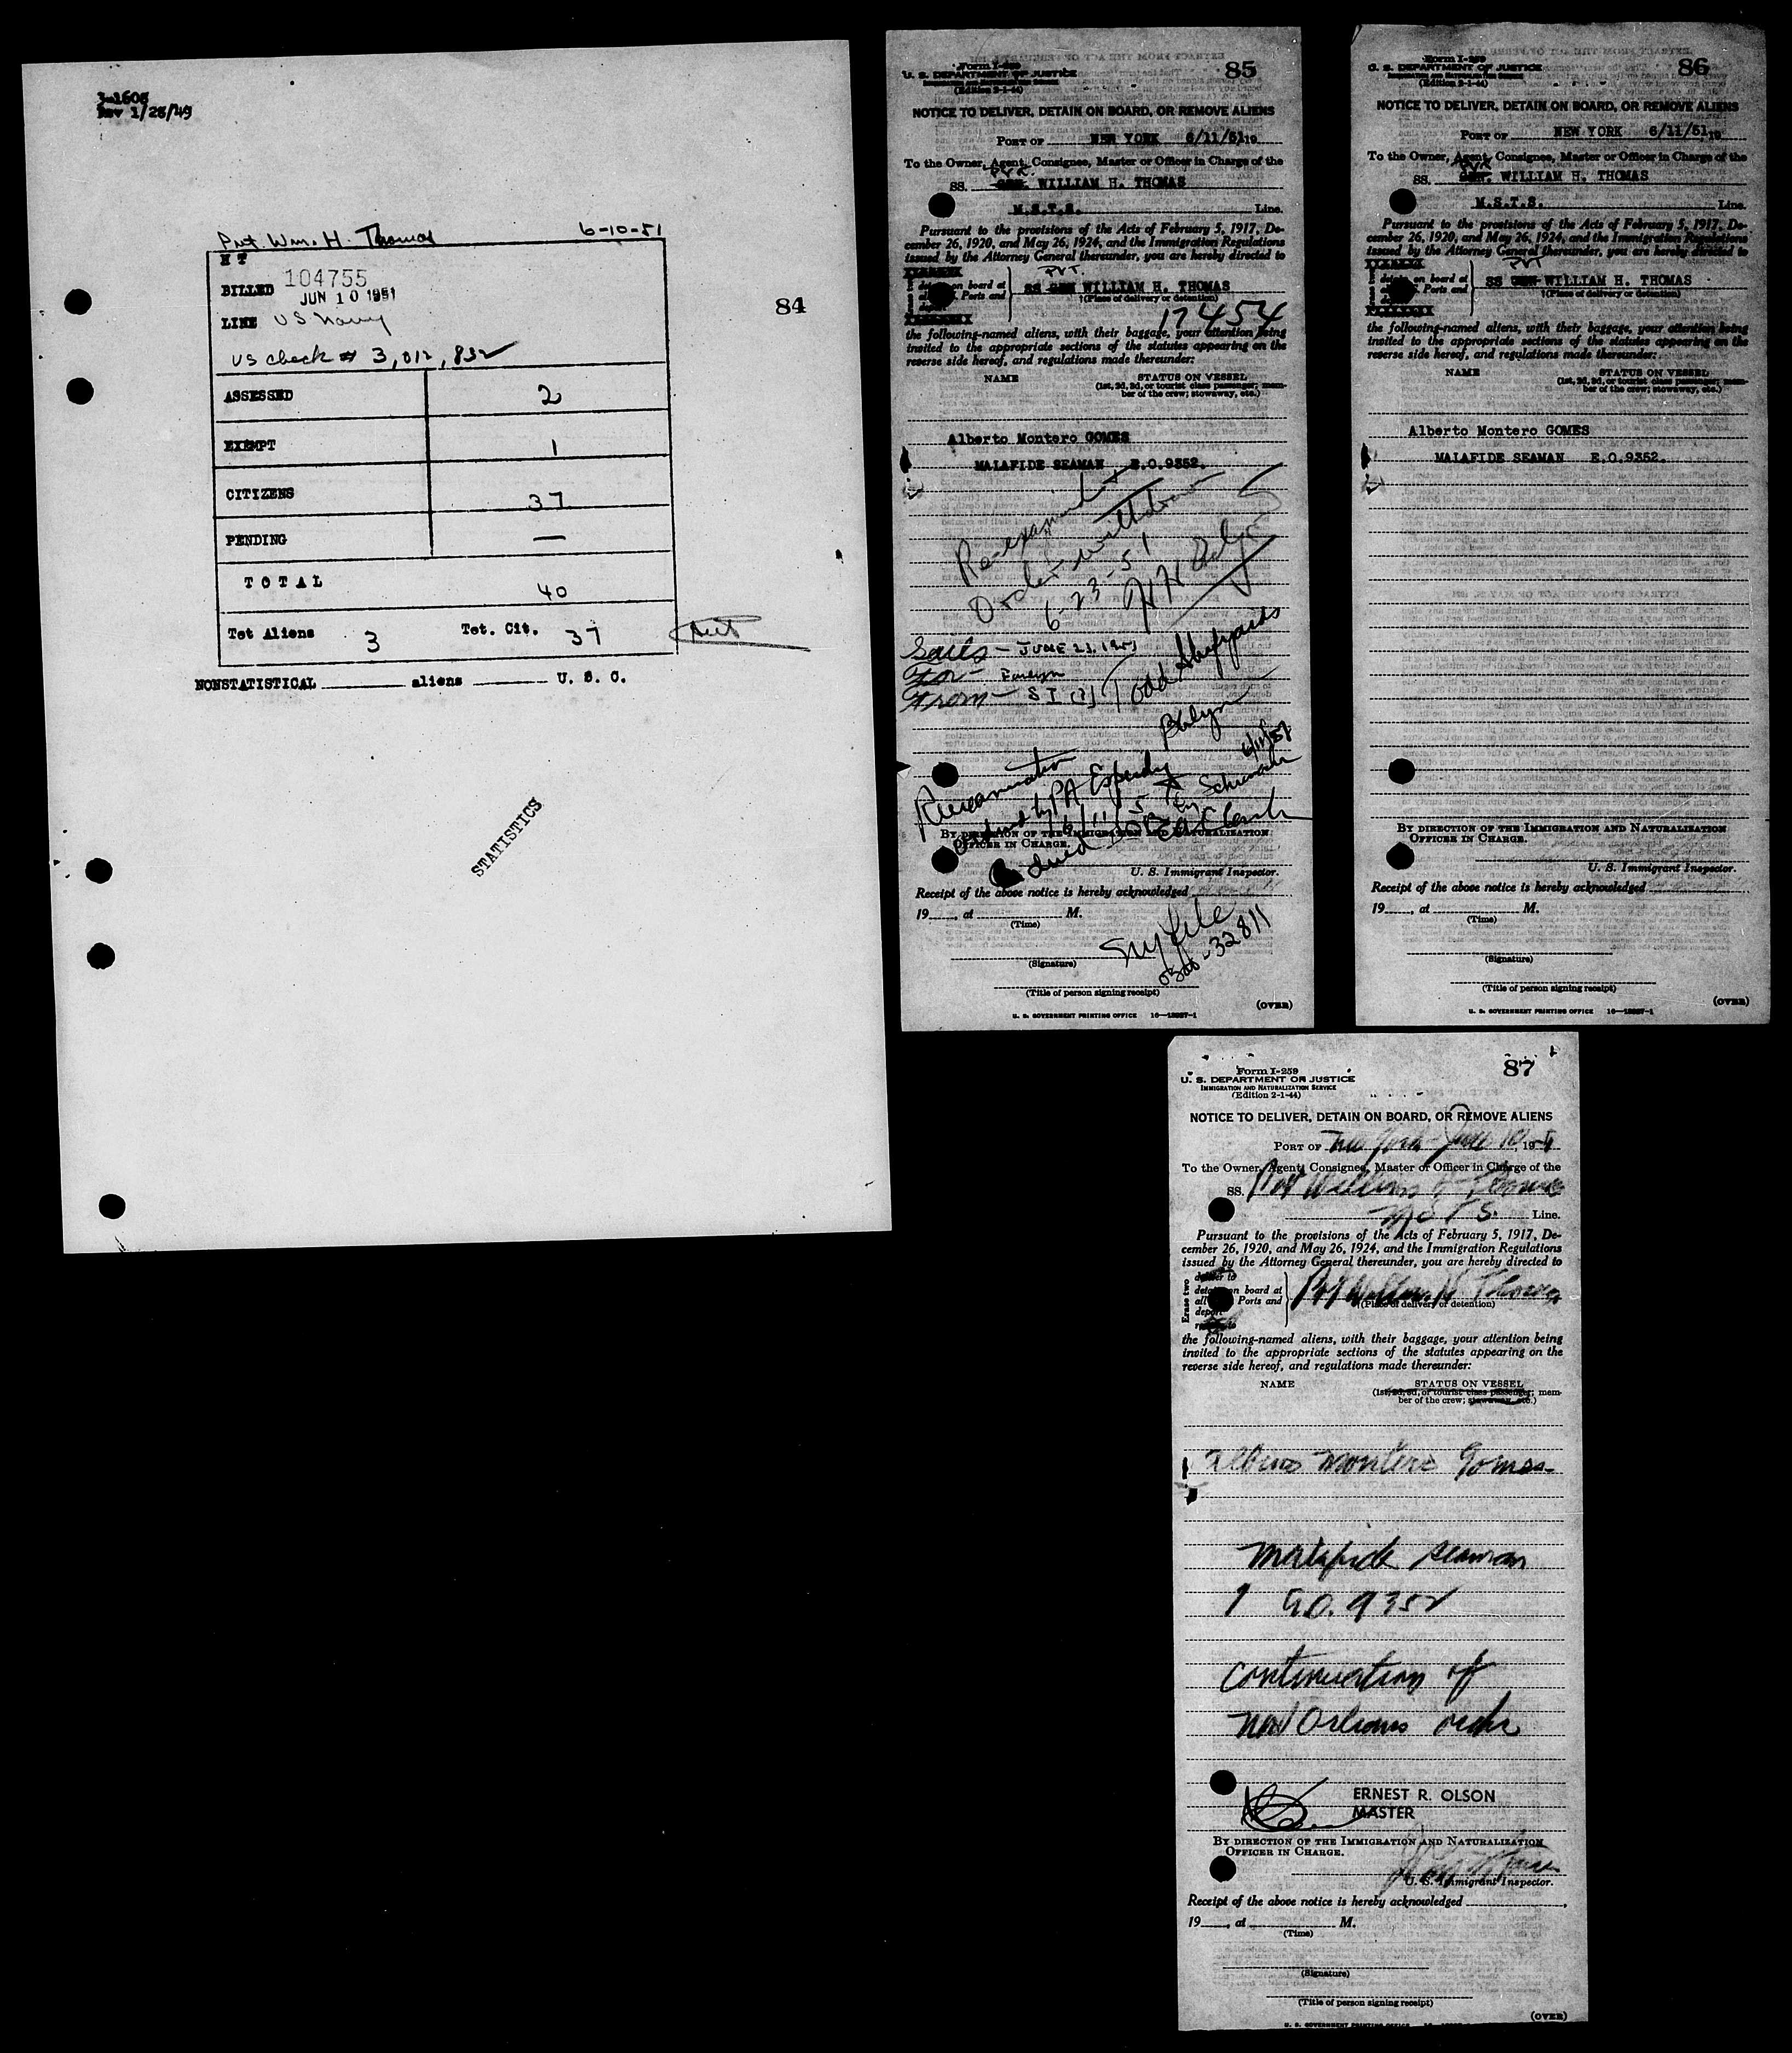 3-1605
Rev 1/25/49
84
Pvt. Wm. H. Thomas 6-10-51
H T
BILLED 104755
JUN 10 1951
LINE US Navy
US check # 3,012,832
ASSESSED 2
EXEMPT 1
CITIZENS 37
PENDING —
TOTAL 40
Tot Aliens 3 Tot. Cit. 37
NONSTATISTICAL aliens U. S. C.
STATISTICS
Form I-259
85
U. S. DEPARTMENT OF JUSTICE
IMMIGRATION AND NATURALIZATION SERVICE
(Edition 2-1-44)
NOTICE TO DELIVER, DETAIN ON BOARD, OR REMOVE ALIENS
PORT OF NEW YORK 6/11/51 19
To the Owner, Agent, Consignee, Master or Officer in Charge of the
PVT.
SS. GEN. WILLIAM H. THOMAS
M.S.T.S. Line.
Pursuant to the provisions of the Acts of February 5, 1917, De-
cember 26, 1920, and May 26, 1924, and the Immigration Regulations
issued by the Attorney General thereunder, you are hereby directed to
PVT.
on board at
Ports and
SS GEN WILLIAM H. THOMAS
†(Place of delivery or detention)
17454
the following-named aliens, with their baggage, your attention being
invited to the appropriate sections of the statutes appearing on the
reverse side hereof, and regulations made thereunder:
NAME STATUS ON VESSEL
(1st, 2d, 3d, or tourist class passenger; mem-
ber of the crew; stowaway, etc.)
Alberto Montero GOMES
MALAFIDE SEAMAN E.O.9352.
Re-examined &
Order withdrawn
6-23-51
Sails - JUNE 23, 1951
For -
From - S I [?] Todd Shipyards
Bklyn
6/11/51
Reexamination
ordered by PA Esperdy
6/11/51 by Schwach
BY DIRECTION OF THE IMMIGRATION AND NATURALIZATION
OFFICER IN CHARGE.
U. S. Immigrant Inspector.
Receipt of the above notice is hereby acknowledged
19 , at M.
(Time)
NY file
0300-32811
(Signature)
(Title of person signing receipt)
(OVER)
U. S. GOVERNMENT PRINTING OFFICE 16—12227-1
Form I-259
86
U. S. DEPARTMENT OF JUSTICE
IMMIGRATION AND NATURALIZATION SERVICE
(Edition 2-1-44)
NOTICE TO DELIVER, DETAIN ON BOARD, OR REMOVE ALIENS
PORT OF NEW YORK 6/11/51 19
To the Owner, Agent, Consignee, Master or Officer in Charge of the
PVT.
SS. GEN. WILLIAM H. THOMAS
M.S.T.S. Line.
Pursuant to the provisions of the Acts of February 5, 1917, De-
cember 26, 1920, and May 26, 1924, and the Immigration Regulations
issued by the Attorney General thereunder, you are hereby directed to
PVT
on board at
Ports and
SS GEN WILLIAM H. THOMAS
†(Place of delivery or detention)
the following-named aliens, with their baggage, your attention being
invited to the appropriate sections of the statutes appearing on the
reverse side hereof, and regulations made thereunder:
NAME STATUS ON VESSEL
(1st, 2d, 3d, or tourist class passenger; mem-
ber of the crew; stowaway, etc.)
Alberto Montero GOMES
MALAFIDE SEAMAN E.O.9352.
BY DIRECTION OF THE IMMIGRATION AND NATURALIZATION
OFFICER IN CHARGE.
U. S. Immigrant Inspector.
Receipt of the above notice is hereby acknowledged
19 , at M.
(Time)
(Signature)
(Title of person signing receipt)
(OVER)
U. S. GOVERNMENT PRINTING OFFICE 16—12227-1
Form I-259
87
U. S. DEPARTMENT OF JUSTICE
IMMIGRATION AND NATURALIZATION SERVICE
(Edition 2-1-44)
NOTICE TO DELIVER, DETAIN ON BOARD, OR REMOVE ALIENS
PORT OF New York June 10, 1951
To the Owner, Agent, Consignee, Master or Officer in Charge of the
SS. Pvt William H Thomas
MSTS. Line.
Pursuant to the provisions of the Acts of February 5, 1917, De-
cember 26, 1920, and May 26, 1924, and the Immigration Regulations
issued by the Attorney General thereunder, you are hereby directed to
Erase two
deliver to
detain on board at
all Ports and
deport
Pvt William H Thomas
†(Place of delivery or detention)
the following-named aliens, with their baggage, your attention being
invited to the appropriate sections of the statutes appearing on the
reverse side hereof, and regulations made thereunder:
NAME STATUS ON VESSEL
(1st, 2d, 3d, or tourist class passenger; mem-
ber of the crew; stowaway, etc.)
Alberto Montero Gomes
Malafide seaman
E.O. 9352
continuation of
New Orleans order
ERNEST R. OLSON
MASTER
BY DIRECTION OF THE IMMIGRATION AND NATURALIZATION
OFFICER IN CHARGE.
U. S. Immigrant Inspector.
Receipt of the above notice is hereby acknowledged
19 , at M.
(Time)
(Signature)
(Title of person signing receipt)
(OVER)
U. S. GOVERNMENT PRINTING OFFICE